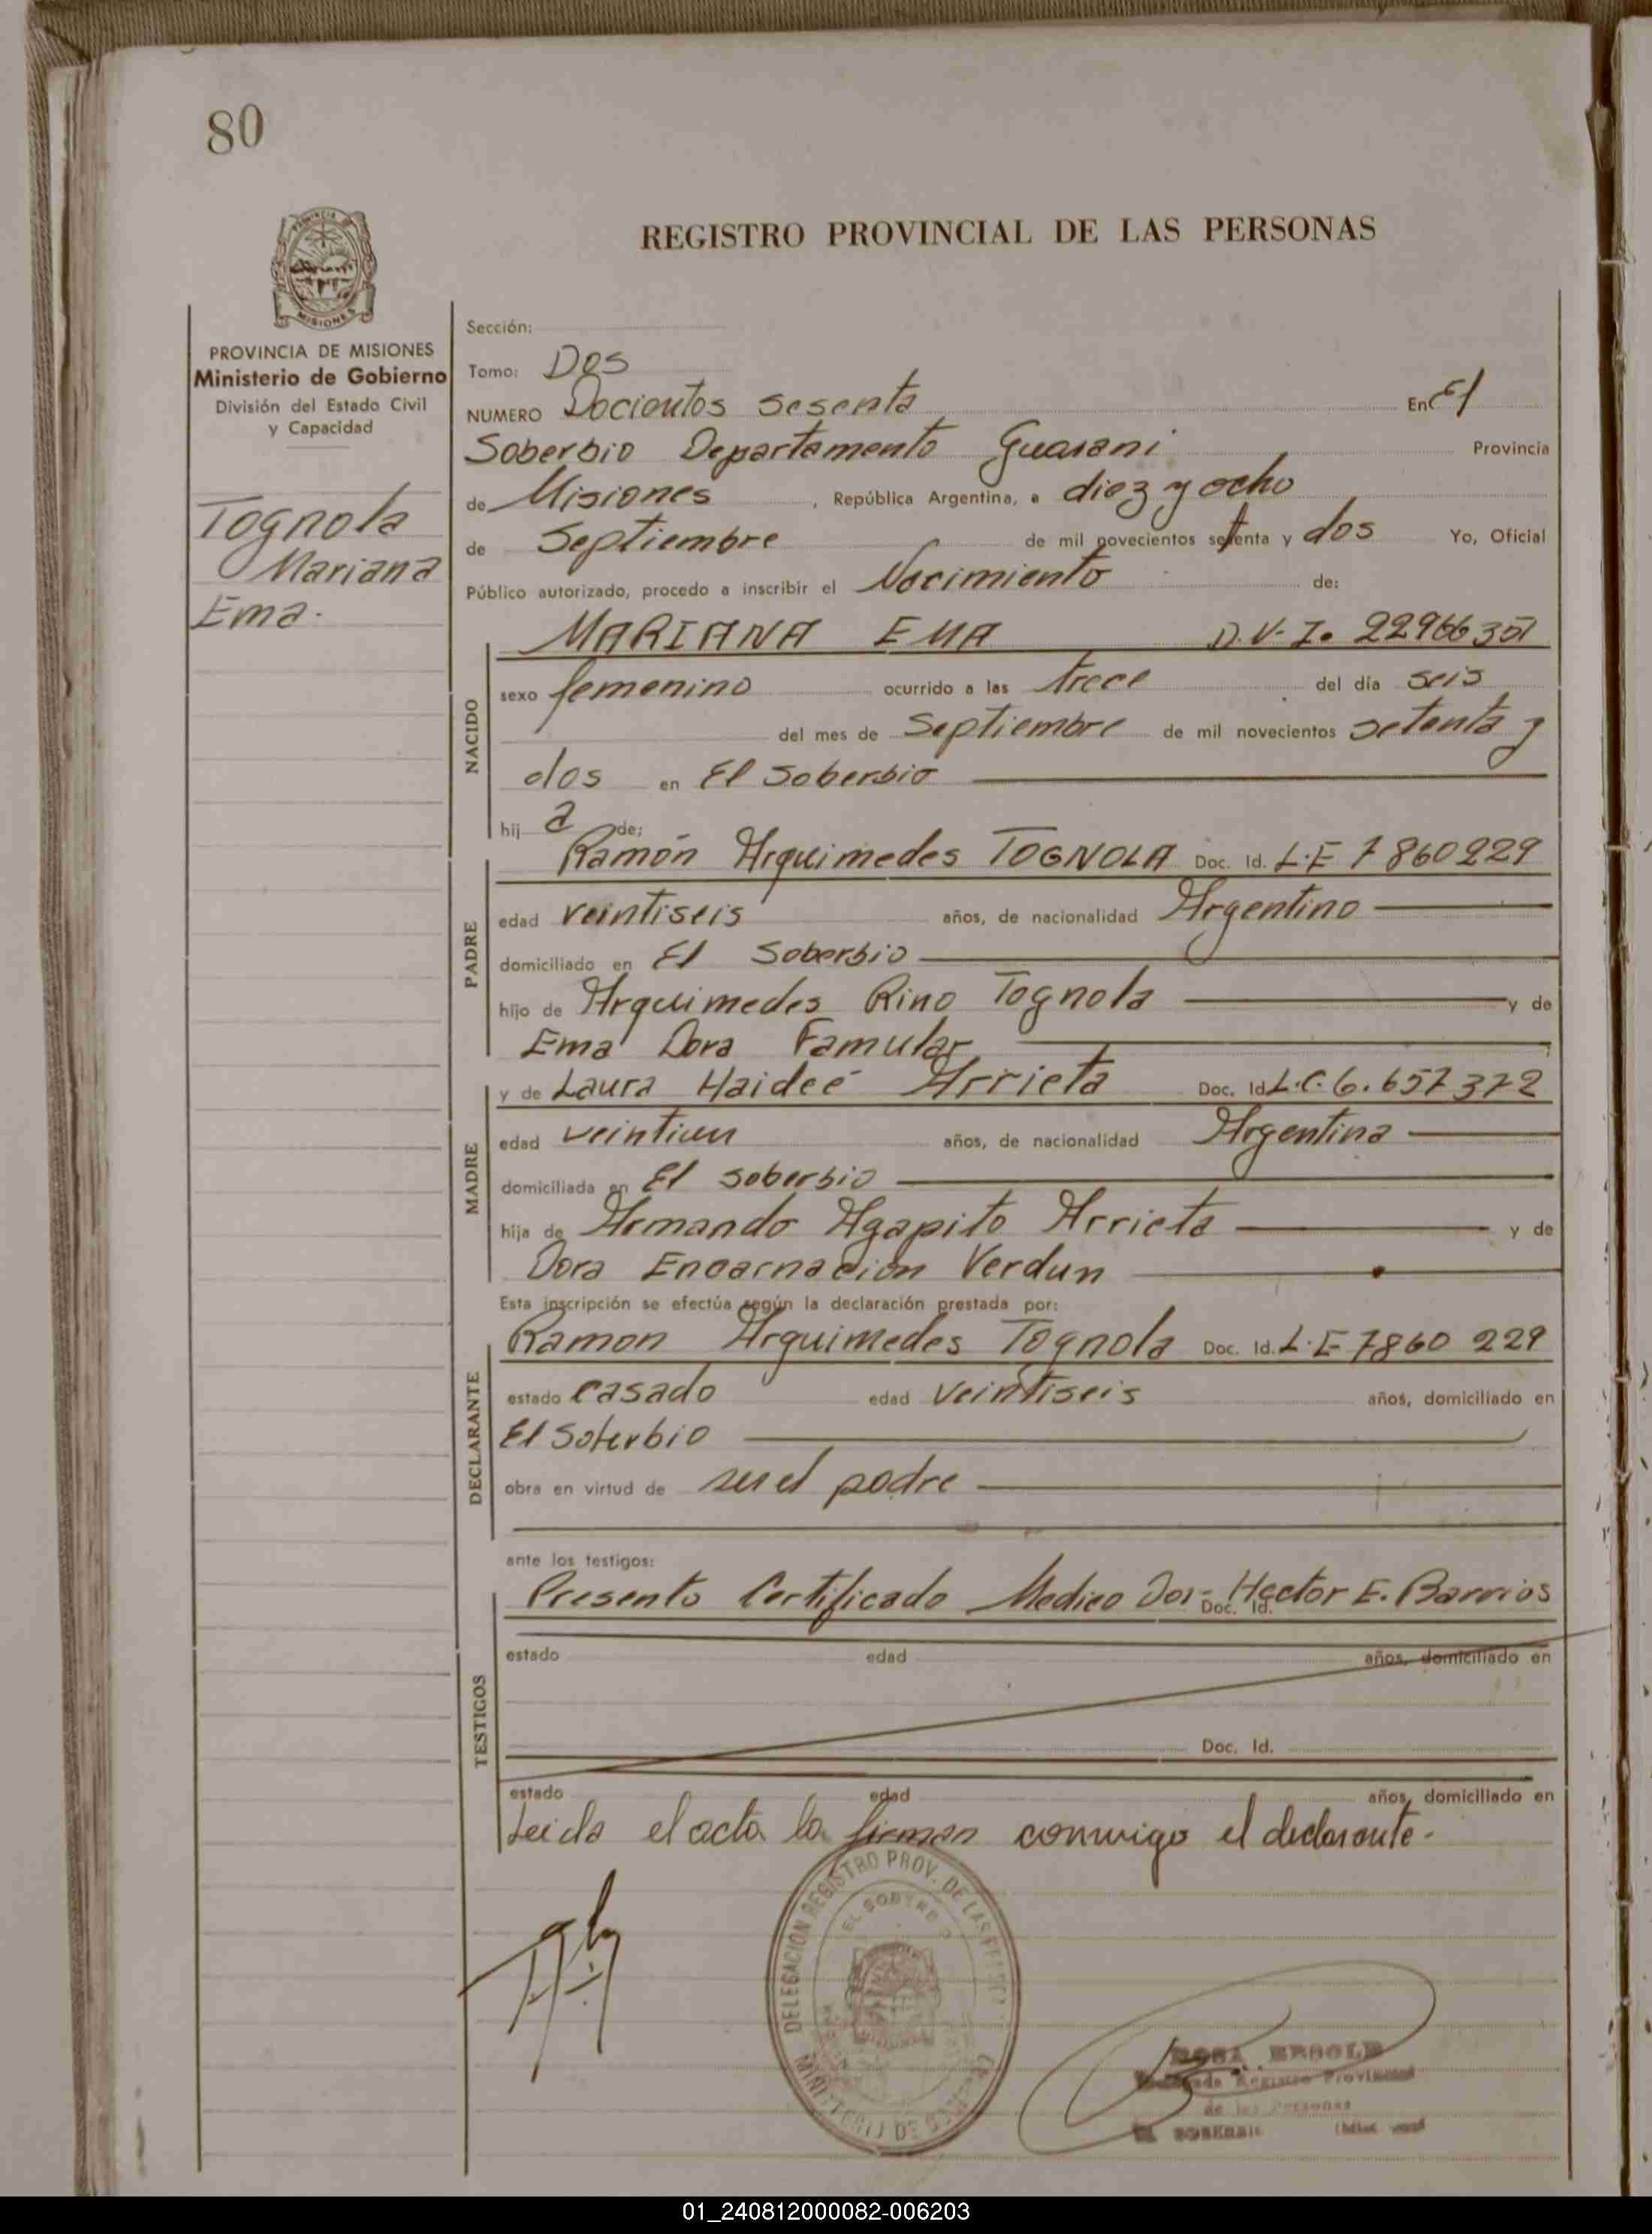 80
PROVINCIA DE MISIONES
Ministerio de Gobierno
División del Estado Civil
y Capacidad
Tognola
Mariana
Ema.
REGISTRO PROVINCIAL DE LAS PERSONAS
Sección:
Tomo: Dos
NUMERO Docientos sesenta En El
Soberbio Departamento Guarani Provincia
de Misiones, República Argentina, a diez y ocho
de Septiembre de mil novecientos setenta y dos Yo, Oficial
Público autorizado, procedo a inscribir el Nacimiento de:
NACIDO
MARIANA EMA
sexo femenino ocurrido a las trece del día seis
del mes de Septiembre de mil novecientos setenta y
dos en El Soberbio
hij a de:
PADRE
Ramón Arquimedes TOGNOLA Doc. Id. L.E 7860229
edad veintiseis años, de nacionalidad Argentino
domiciliado en El Soberbio
hijo de Arquimedes Rino Tognola y de
Ema Dora Famular
MADRE
y de Laura Haideé Arrieta Doc. Id. L.C. 6.657372
edad veintiun años, de nacionalidad Argentina
domiciliada en El soberbio
hija de Armando Agapito Arrieta y de
Dora Encarnación Verdun
Esta inscripción se efectúa según la declaración prestada por:
DECLARANTE
Ramon Arquimedes Tognola Doc. Id. L.E 7860 229
estado Casado edad Veintiseis años, domiciliado en
El Soberbio
obra en virtud de ser el padre
ante los testigos:
TESTIGOS
Presento Certificado Medico Dor- Hector E. Barrios
Doc. Id.
estado edad años, domiciliado en
Doc. Id.
estado edad años, domiciliado en
Leida el acta la firman conmigo el declarante.
DELEGACION REGISTRO PROV. DE LAS
MINISTERIO DE
ROSA
Registro Provincial
de las Personas
01_240812000082-006203